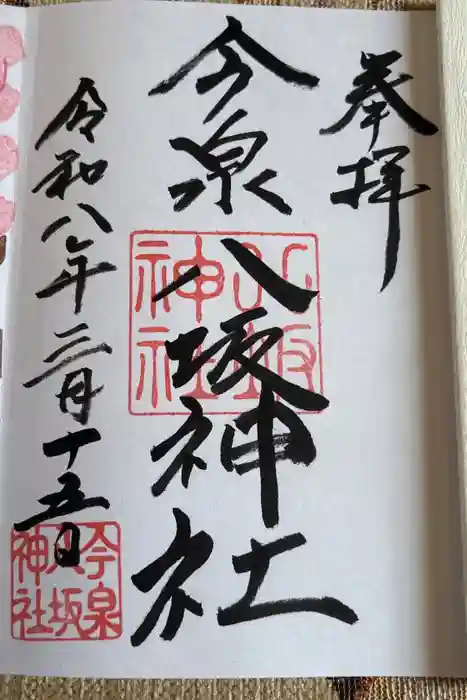 奉拝
今泉八坂神社
令和八年三月十五日
八坂
神社
今泉
八坂
神社